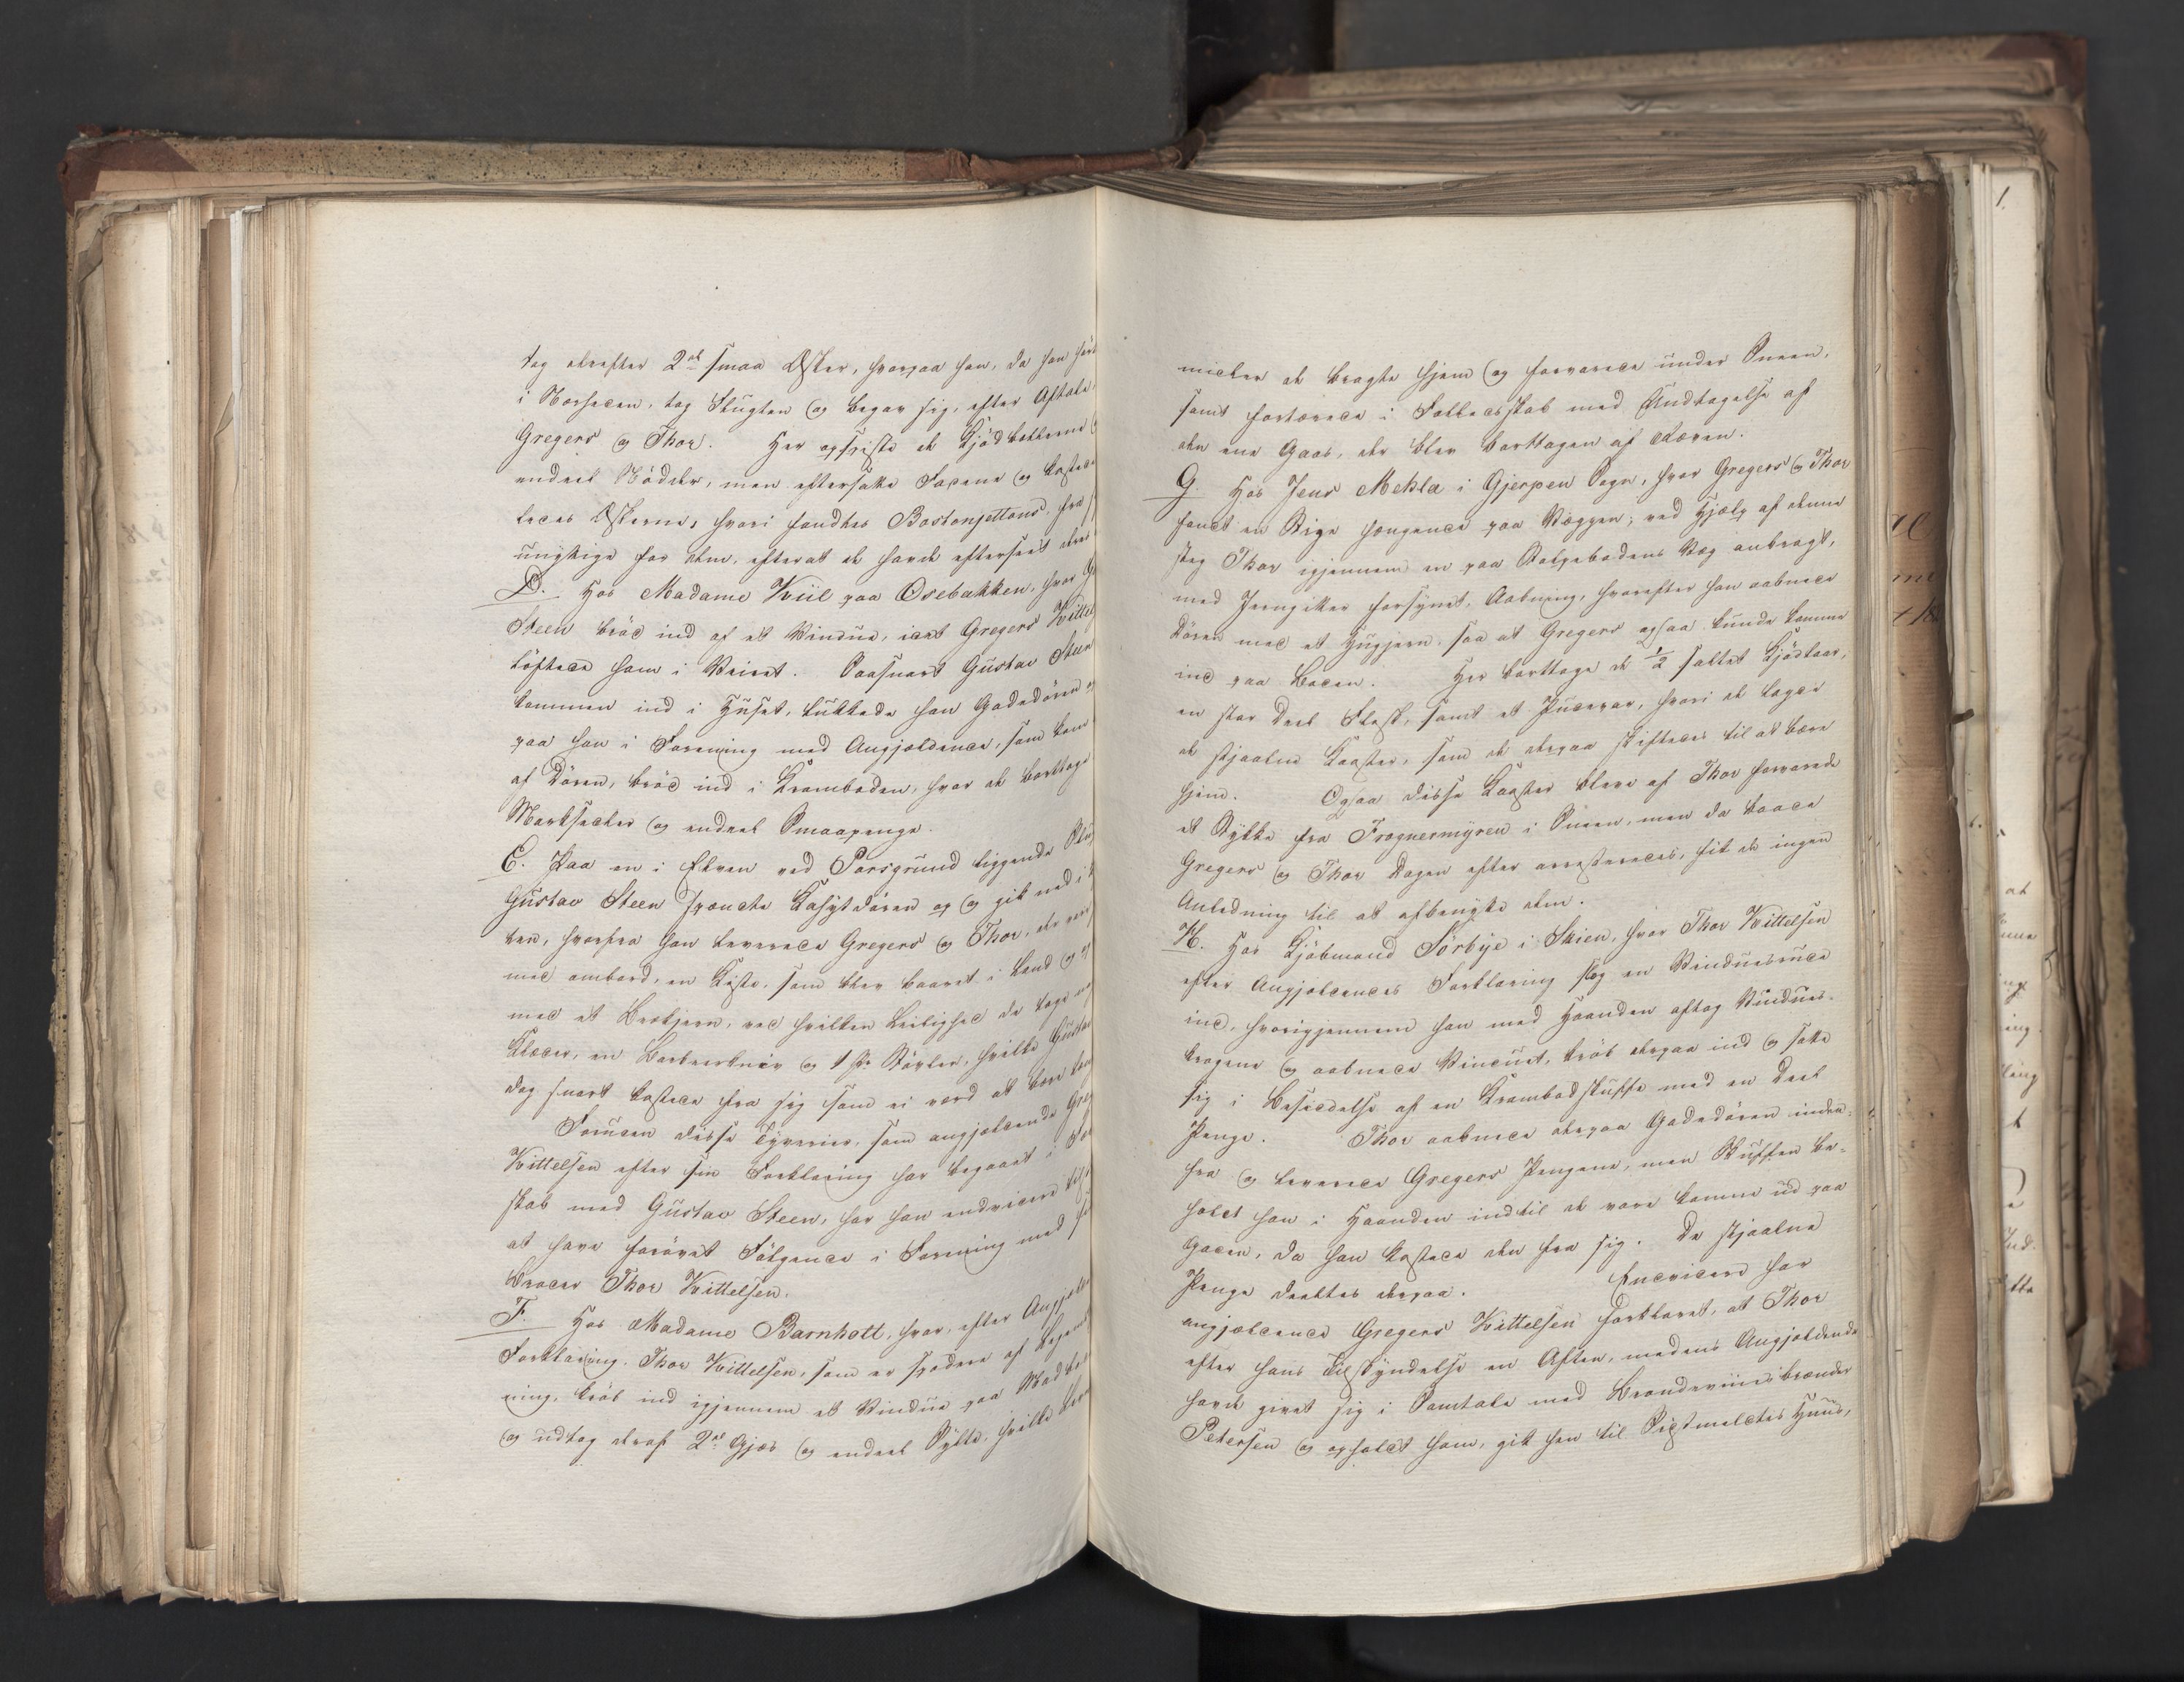 tog derefter 2de smaa Æsker, hvorpaa han, da han hørte
i Nærheden, tog Flugten og begav sig, efter Aftale,
Gregers og Thor. Her opspiste de Kjødbollerne
endeel Nødder, men eftersatte Sagene og kastede
ledes Æskerne, hvori fandtes Bostonjettons, fra
unyttige for dem, efterat de havde efterseet deres
D. Hos Madame Kiil paa Osebakken, hvor G
Steen brød ind af et Vindue, idet Gregers Kittel
løftede ham i Veiret. Saasnart Gustav Steen
kommen ind i Huset, lukkede han Gadedøren
paa han i Forening med Angjældende, som kom
af Døren, brød ind i Kramboden, hvor de borttoge
Marksedler og endeel Smaapenge.
E. Paa en i Elven ved Porsgrund liggende
Gustav Steen sprængte Kahytdøren op og gik ned i
ten, hvorfra han leverede Gregers og Thor, der vare
med ombord, en Kiste, som blev baaret i Land og
med et Brækjern, ved hvilken Leilighed de toge
Klæder, en Barbeerkniv og 1 Pr Støvler, hvilke Gustav
dog snart kastede fra sig som ei værd at bære
Foruden disse Tyverier, som angjældende Greg
Kittelsen efter sin Forklaring har begaaet i Fæl
skab med Gustav Steen, har han endvidere
at have forøvet Følgende i Forening med
Broder Thor Kittelsen.
F. Hos Madame Barnholt, hvor, efter Angjæld
Forklaring, Thor Kittelsen, som er spædere af Legems
ning, krøb ind igjennem et Vindue paa Madbo
og udtog deraf 2de Gjæs og endeel Sylte, hvilke

midler de bragte hjem og forvarede under Sneen,
samt fortærede i Fælledsskab med Undtagelse af
den ene Gaas, der blev borttagen af Ræven.
G. Hos Jens Mehla i Gjerpen Sogn, hvor Gregers og Thor
fandt en Stige hængende paa Væggen; ved Hjælp af denne
steg Thor igjennem en paa Stolpebodens Væg anbragt,
med Jerngitter forsynet, Aabning, hvorefter han aabnede
Døren med et Huggjern, saa at Gregers ogsaa kunde komme
ind paa Boden. Her borttoge de ½ saltet Kjødlaar,
en stor Deel Flesk, samt et Pudevar, hvori de lagde
de stjaalne Koster, som de derpaa skiftedes til at bære
hjem. Ogsaa disse Koster bleve af Thor forvarede
et Stykke fra Frognermyren i Sneen, men da baade
Gregers og Thor Dagen efter arresteredes, fik de ingen
Anledning til at afbenytte dem.
H. Hos Kjøbmand Sørbye i Skien, hvor Thor Kittelsen
efter Angjældendes Forklaring slog en Vinduesrude
ind, hvorigjennem han med Haanden aftog Vindues-
krogene og aabnede Vinduet, krøb derpaa ind og satte
sig i Besiddelse af en Krambodskuffe med en Deel
Penge. Thor aabnede derpaa Gadedøren inden-
fra og leverede Gregers Pengene, men Skuffen be-
holdt han i Haanden indtil de vare komne ud paa
Gaden, da han kastede den fra sig. De stjaalne
Penge deeltes derpaa. Endvidere har
angjældende Gregers Kittelsen forklaret, at Thor
efter hans Tilskyndelse en Aften, medens Angjældende
havde givet sig i Samtale med Brændeviinsbrænder
Petersen og opholdt ham, gik hen til Huus,